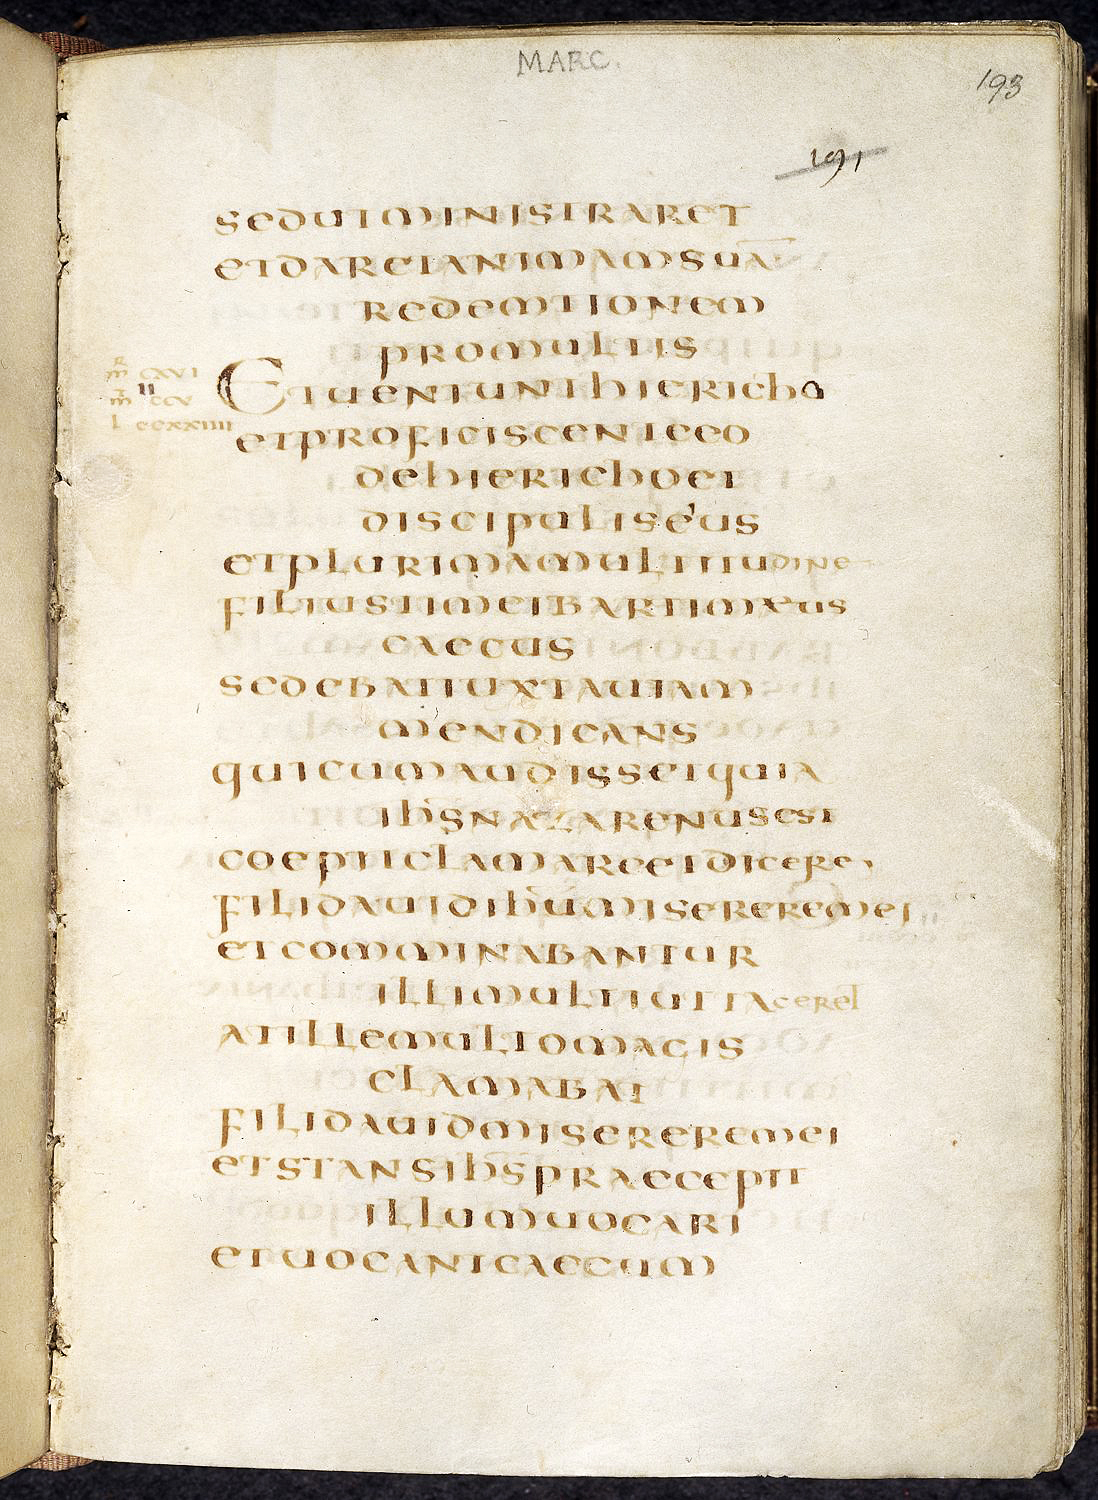 MARC.
193
191
sedutministraret
etdaretanimamsuā
redemtionem
promultis
Etueniunthiericho
R
m̄ cxvi
ii
m̄ ccv
l ccxxiiii
etproficiscenteeo
dehierichoet
discipuliseius
etplurimamultitudine
filiustimeibartimaeus
caecus
sedebatiuxtauiam
mendicans
quicumaudissetquia
ihs̄nazarenusest
coepitclamareetdicere
filidauidihūmisereremei
etcomminabantur
illimultiuttaceret
atillemultomagis
clamabat
filidauidmisereremei
etstansihs̄praecepit
illumuocari
etuocantcaecum